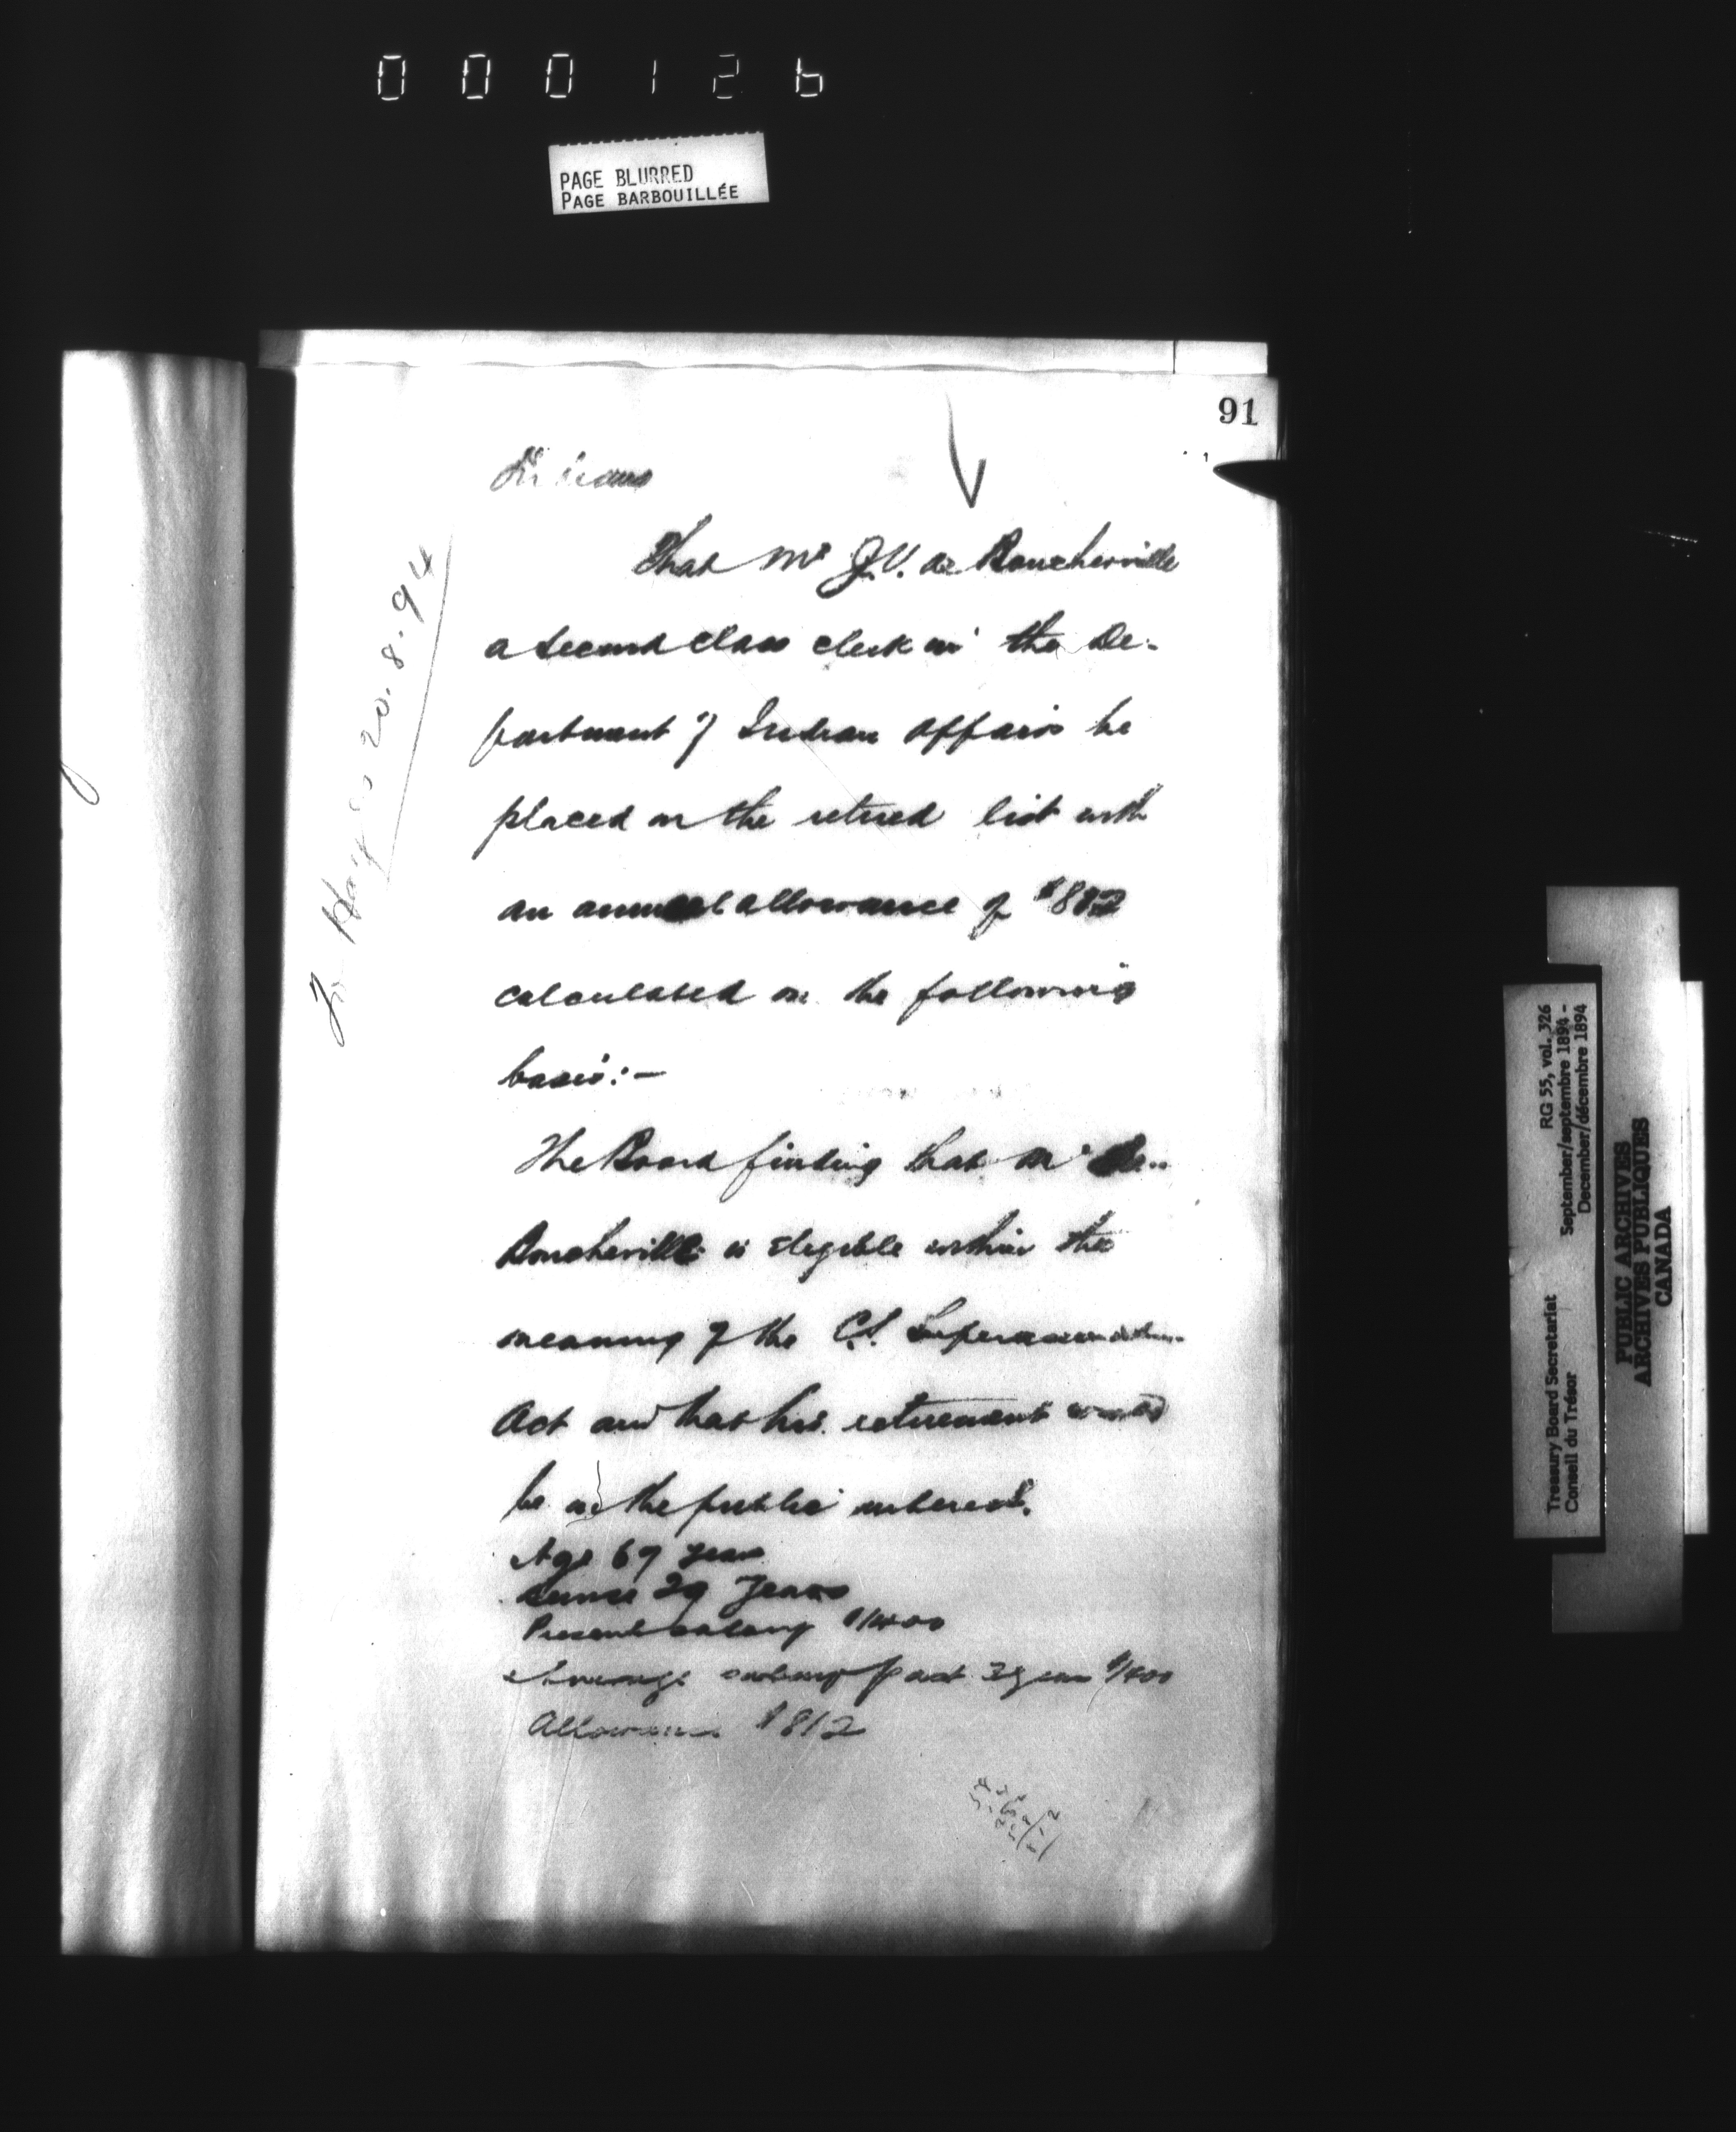 000126
PAGE BLURRED
PAGE BARBOUILLÉE
91
Indians
20.8.94
That Mr J.V. de Boucherville
a second class clerk in the De-
partment of Indian Affairs be
placed on the retired list with
an annual allowance of $812
calculated on the following
basis:-
The Board finding that Mr de
Boucherville is eligible within the
meaning of the C.S. Superannuation
Act and that his retirement would
be in the public interest.
Age 67 years
Service 29 years
Present salary $1400
Average salary past 3 years $1400
Allowance $812
Treasury Board Secretariat
Conseil du Trésor
RG 55, vol. 326
September/septembre 1894 -
December/décembre 1894
PUBLIC ARCHIVES
ARCHIVES PUBLIQUES
CANADA